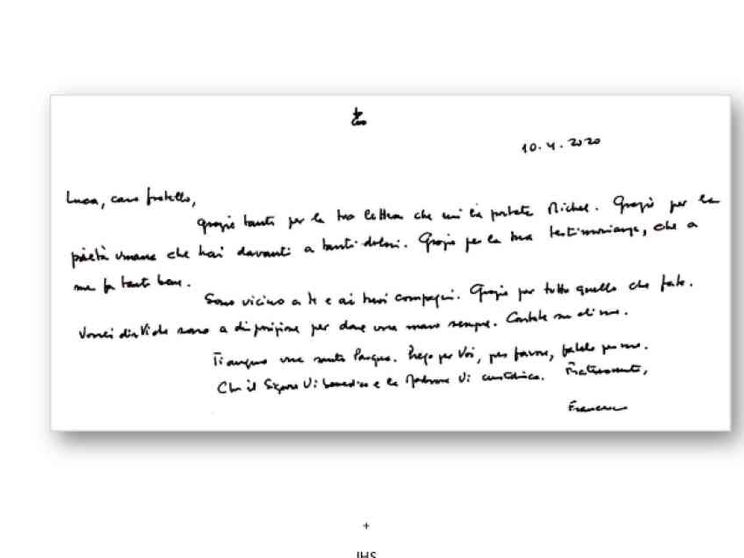 10.4.2020
Luca, caro fratello,
grazie tante per la tua lettera che mi ha portato Michel. Grazie per la
pietà umana che hai davanti a tanti dolori. Grazie per la tua testimonianza, che a
me fa tanto bene.
Sono vicino a te e ai tuoi compagni. Grazie per tutto quello che fate.
Vorrei dirVi che sono a disposizione per dare una mano sempre. Contate su di me.
Ti auguro una santa Pasqua. Prego per Voi, per favore, fatelo per me.
Che il Signore Vi benedica e la Madonna Vi custodisca. Fraternamente,
Francesco
+
IHS